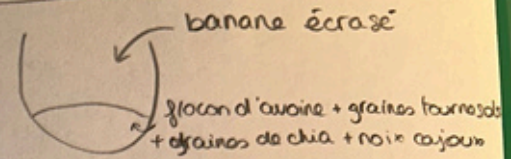 banane écrasé
flocon d'avoine + graines tournesols
+ graines de chia + noix cajoux